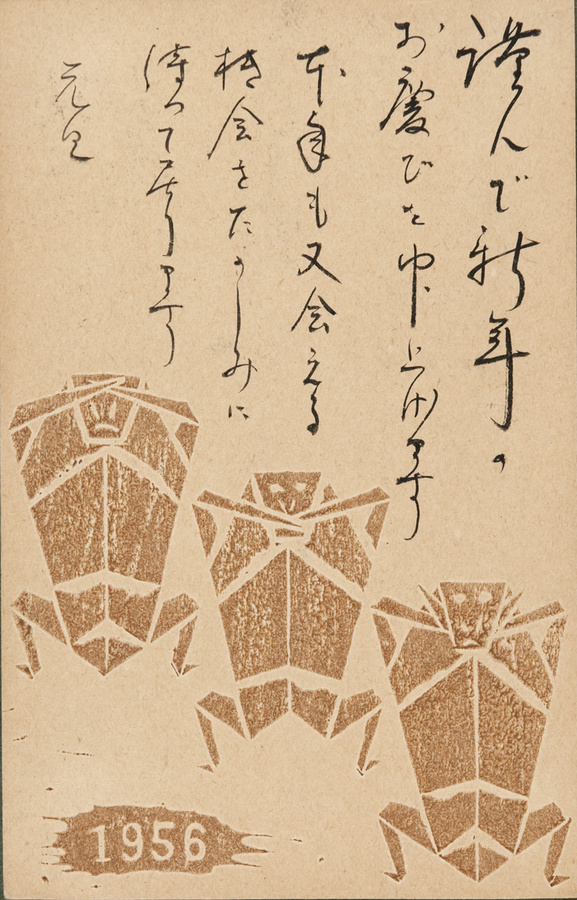 謹んで新年の
お慶びを申し上げます
本年も又会える
機会をたのしみに
待って居ります
元旦
1956